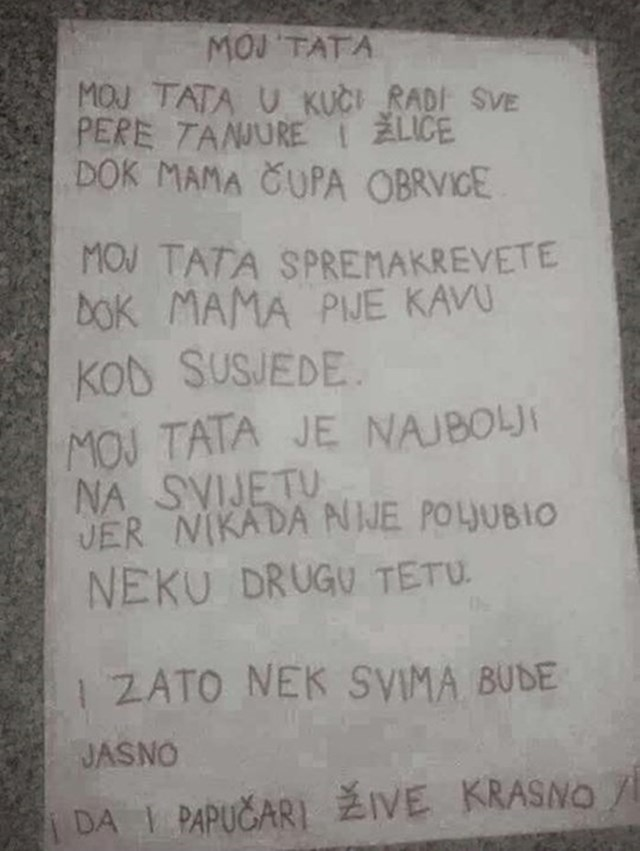 MOJ TATA
MOJ TATA U KUĆI RADI SVE
PERE TANJURE I ŽLICE
DOK MAMA ČUPA OBRVICE
MOJ TATA SPREMAKREVETE
DOK MAMA PIJE KAVU
KOD SUSJEDE.
MOJ TATA JE NAJBOLJI
NA SVIJETU
JER NIKADA NIJE POLJUBIO
NEKU DRUGU TETU.
I ZATO NEK SVIMA BUDE
JASNO
DA I PAPUČARI ŽIVE KRASNO